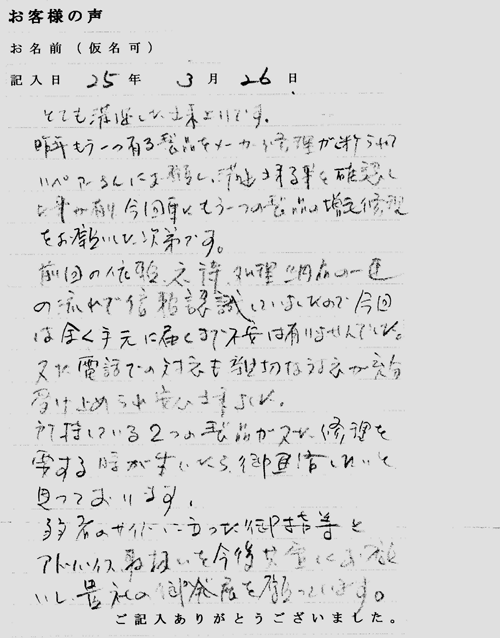 お客様の声
お名前（仮名可）
記入日 25年 3月 26日
とても満足した仕上りです。
昨年もう一つ有る製品をメーカーで修理が断られて
リペアーさんにお願いし、満足出来る事を確認し
た事から今回更にもう一つの製品の修理
をお願いした次第です。
前回の依頼、修理、納品の一連
の流れで信頼認識していましたので今回
は全く手元に届くまで不安は有りませんでした。
又た電話での対応も親切な対応が充分
受け止められ安心出来ました。
所持している2つの製品が又た修理を
要する時が来たら、御連絡したいと
思っております。
のサイドに立った御指導と
アドバイス取扱いを今後共宜しくお願
いし貴社の御発展を願っています。
ご記入ありがとうございました。